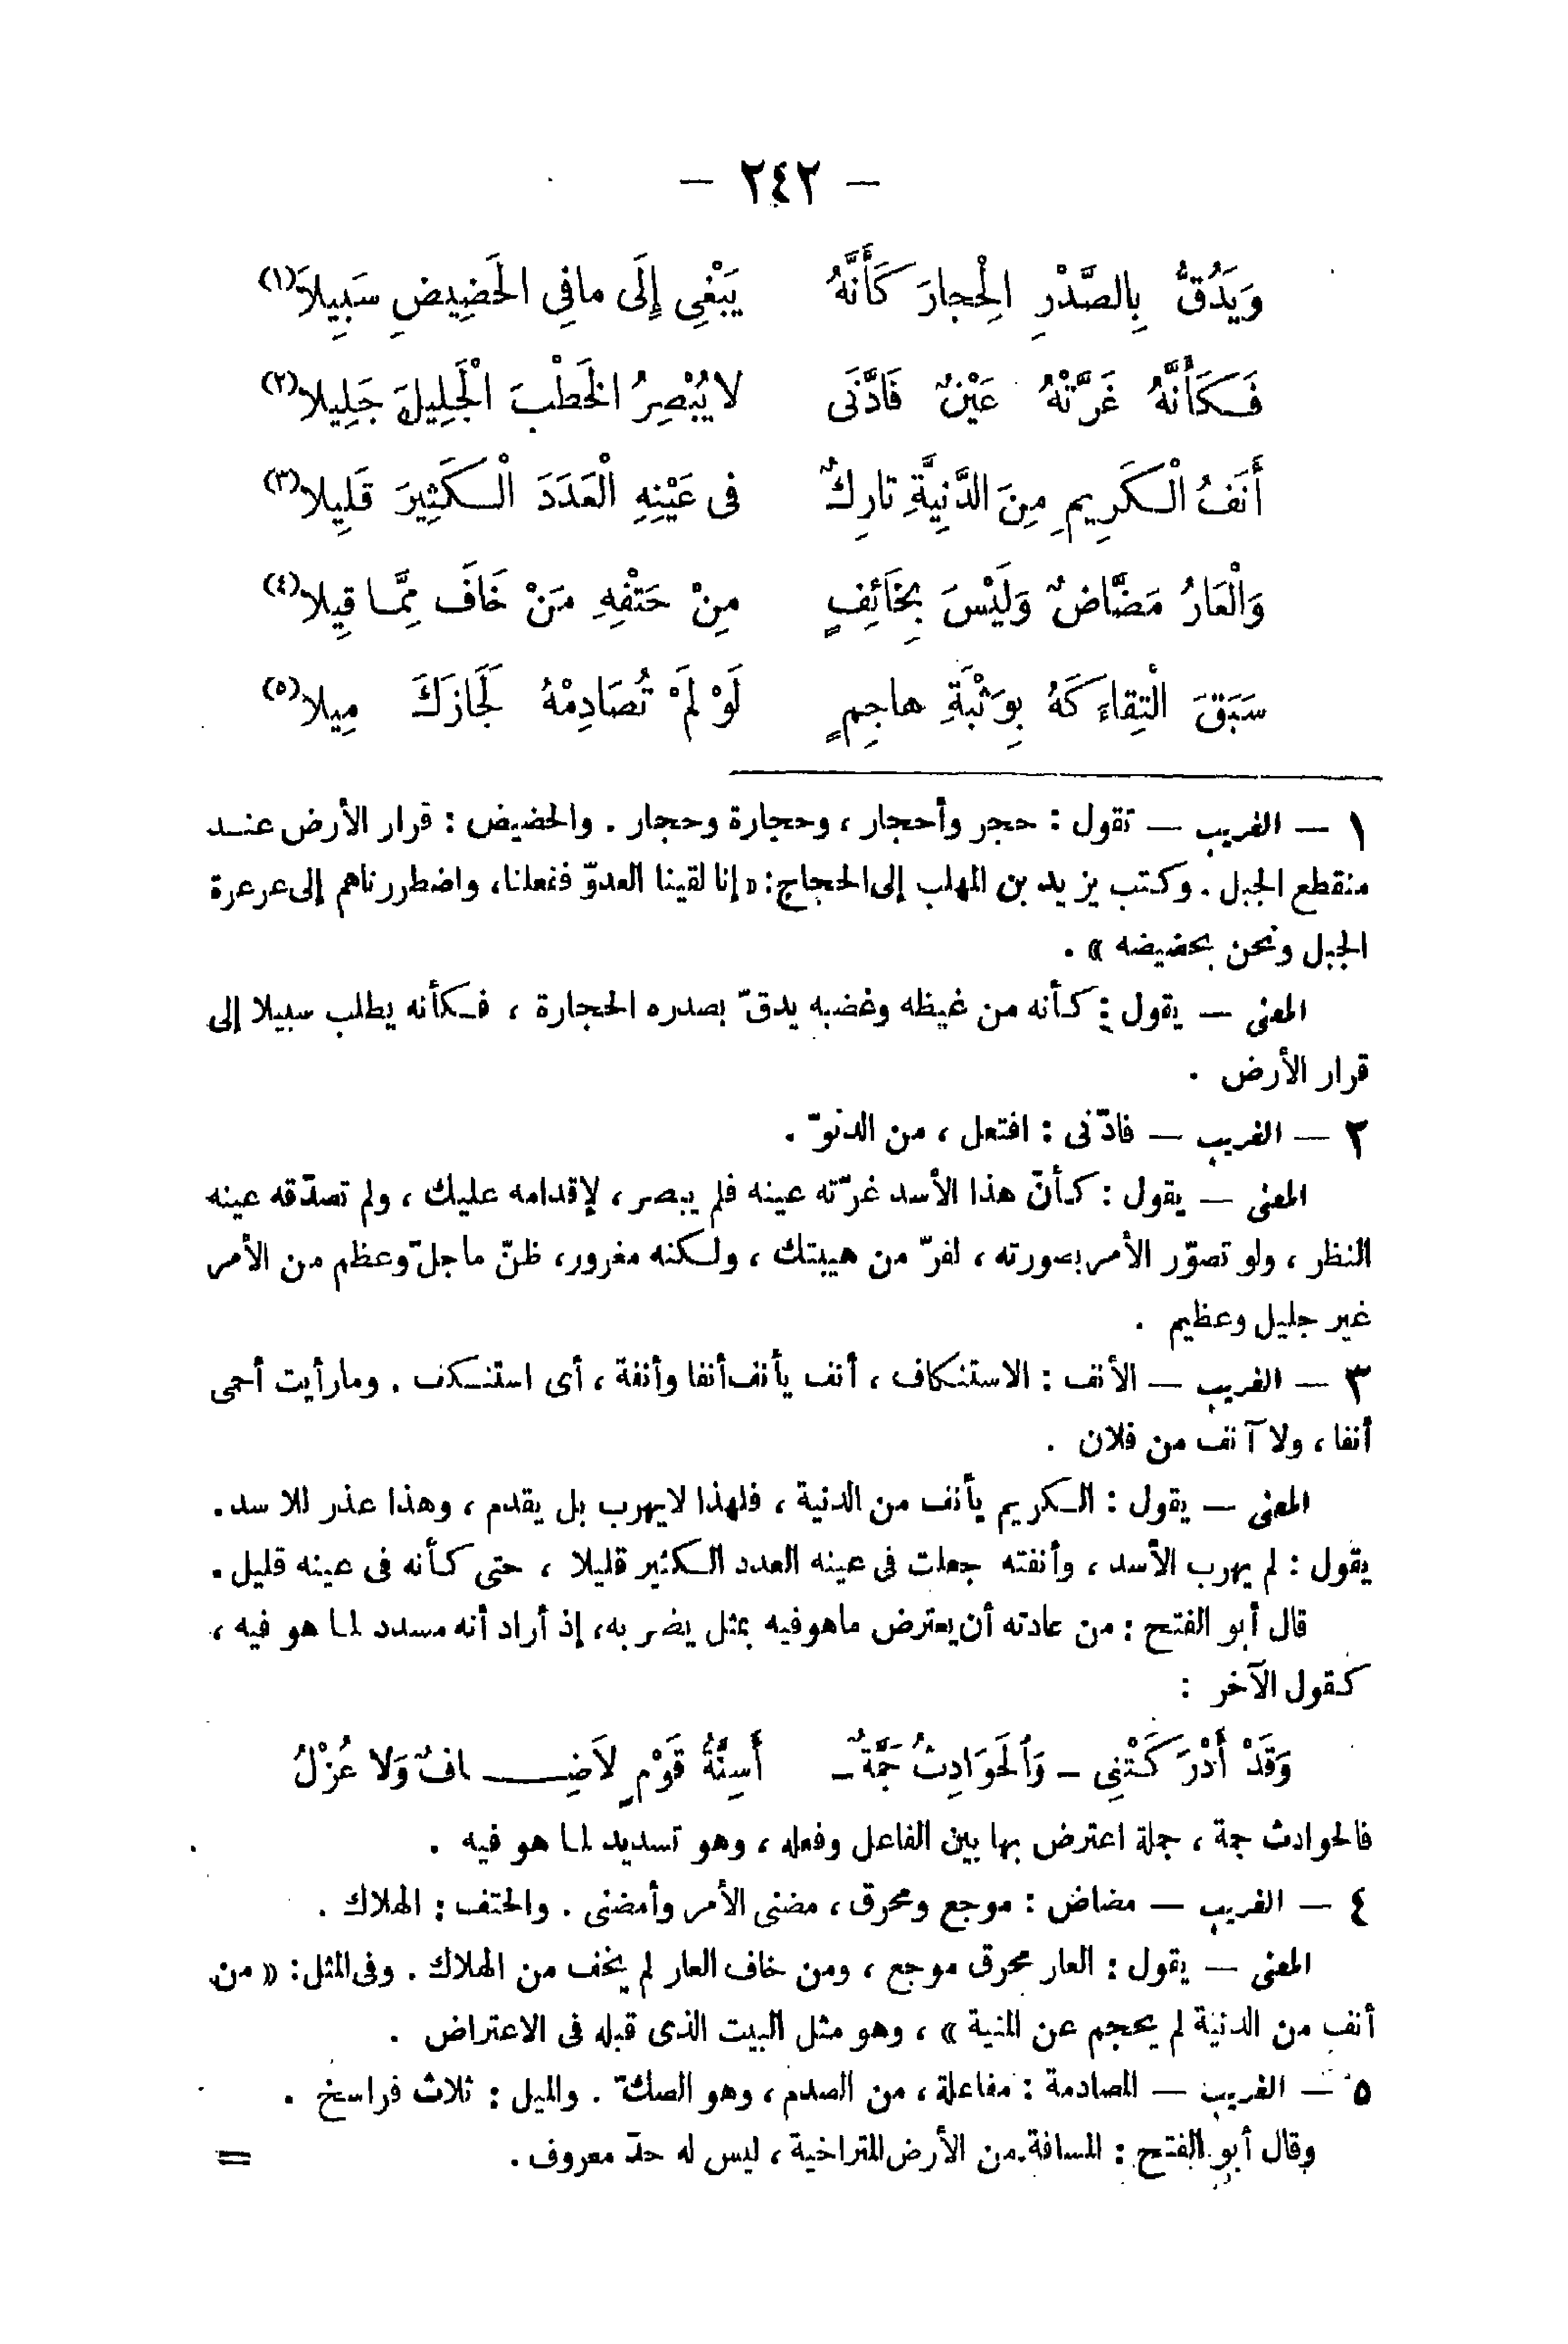 — ٢٤٢ —
وَيَدُقُّ بِالصَّدْرِ الْحِجارَ كَأَنَّهُ يَبْغِى إِلَى مافِى الْحَضِيضِ سَبِيلاَ(١)
فَكَأَنَّهُ غَرَّتْهُ عَيْنٌ فَادَّنَى لا يُبْصِرُ الْخَطْبَ الْجَلِيلَ جَلِيلا(٢)
أَنَفُ الْكَرِيمِ مِنَ الدَّنِيَّةِ تارِكٌ فى عَيْنِهِ الْعَدَدَ الْكَثِيرَ قَلِيلا(٣)
وَالْعَارُ مَضَّاضٌ وَلَيْسَ بِخَائِفٍ مِنْ حَتْفِهِ مَنْ خَافَ مِمَّا قِيلا(٤)
سَبَقَ الْتِقاءَكَهُ بِوَثْبَةِ هاجِمٍ لَوْ لَمْ تُصَادِمْهُ لَجَازَكَ مِيلا(٥)
١ — الغريب — تقول : حجر وأحجار ، وحجارة وحجار . والحضيض : قرار الأرض عنـد
منقطع الجبل . وكتب يزيد بن المهلب إلى الحجاج : « إنا لقينا العدوّ ففعلنا، واضطررناهم إلى عرعرة
الجبل ونحن بحضيضه » .
المعنى — يقول : كأنه من غيظه وغضبه يدقّ بصدره الحجارة ، فكأنه يطلب سبيلا إلى
قرار الأرض .
٢ — الغريب — فادّنى : افتعل ، من الدنوّ .
المعنى — يقول : كأنّ هذا الأسد غرّته عينه فلم يبصر ، لإقدامه عليك ، ولم تصدّقه عينه
النظر ، ولو تصوّر الأمر بصورته ، لفرّ من هيبتك ، ولكنه مغرور، ظنّ ما جلّ وعظم من الأمر
غير جليل وعظيم .
٣ — الغريب — الأنف : الاستنكاف ، أنف يأنف أنفا وأنفة ، أى استنكف . ومارأيت أحمى
أنفا ، ولا آنف من فلان .
المعنى — يقول : الكريم يأنف من الدنية ، فلهذا لايهرب بل يقدم ، وهذا عذر للاسد .
يقول : لم يهرب الأسد ، وأنفته جعلت فى عينه العدد الكثير قليلا ، حتى كأنه فى عينه قليل .
قال أبو الفتح : من عادته أن يعترض ماهو فيه بمثل يضربه، إذ أراد أنه مسدد لما هو فيه ،
كقول الآخر :
وَقَدْ أَدْرَكَتْنِى — وَالْحَوَادِثُ جَمَّةٌ — أَسِنَّةُ قَوْمٍ لاَضِـــافٌ وَلا عُزْلُ
فالحوادث جمة ، جملة اعترض بها بين الفاعل وفعله ، وهو تسديد لما هو فيه .
٤ — الغريب — مضاض : موجع ومحرق ، مضنى الأمر وأمضنى . والحتف : الهلاك .
المعنى — يقول : العار محرق موجع ، ومن خاف العار لم يخف من الهلاك . وفى المثل : « من
أنف من الدنية لم يحجم عن المنية » ، وهو مثل البيت الذى قبله فى الاعتراض .
٥ — الغريب — المصادمة : مفاعلة ، من الصدم ، وهو الصكّ . والميل : ثلاث فراسخ .
وقال أبو الفتح : المسافة من الأرض المتراخية ، ليس له حدّ معروف . =